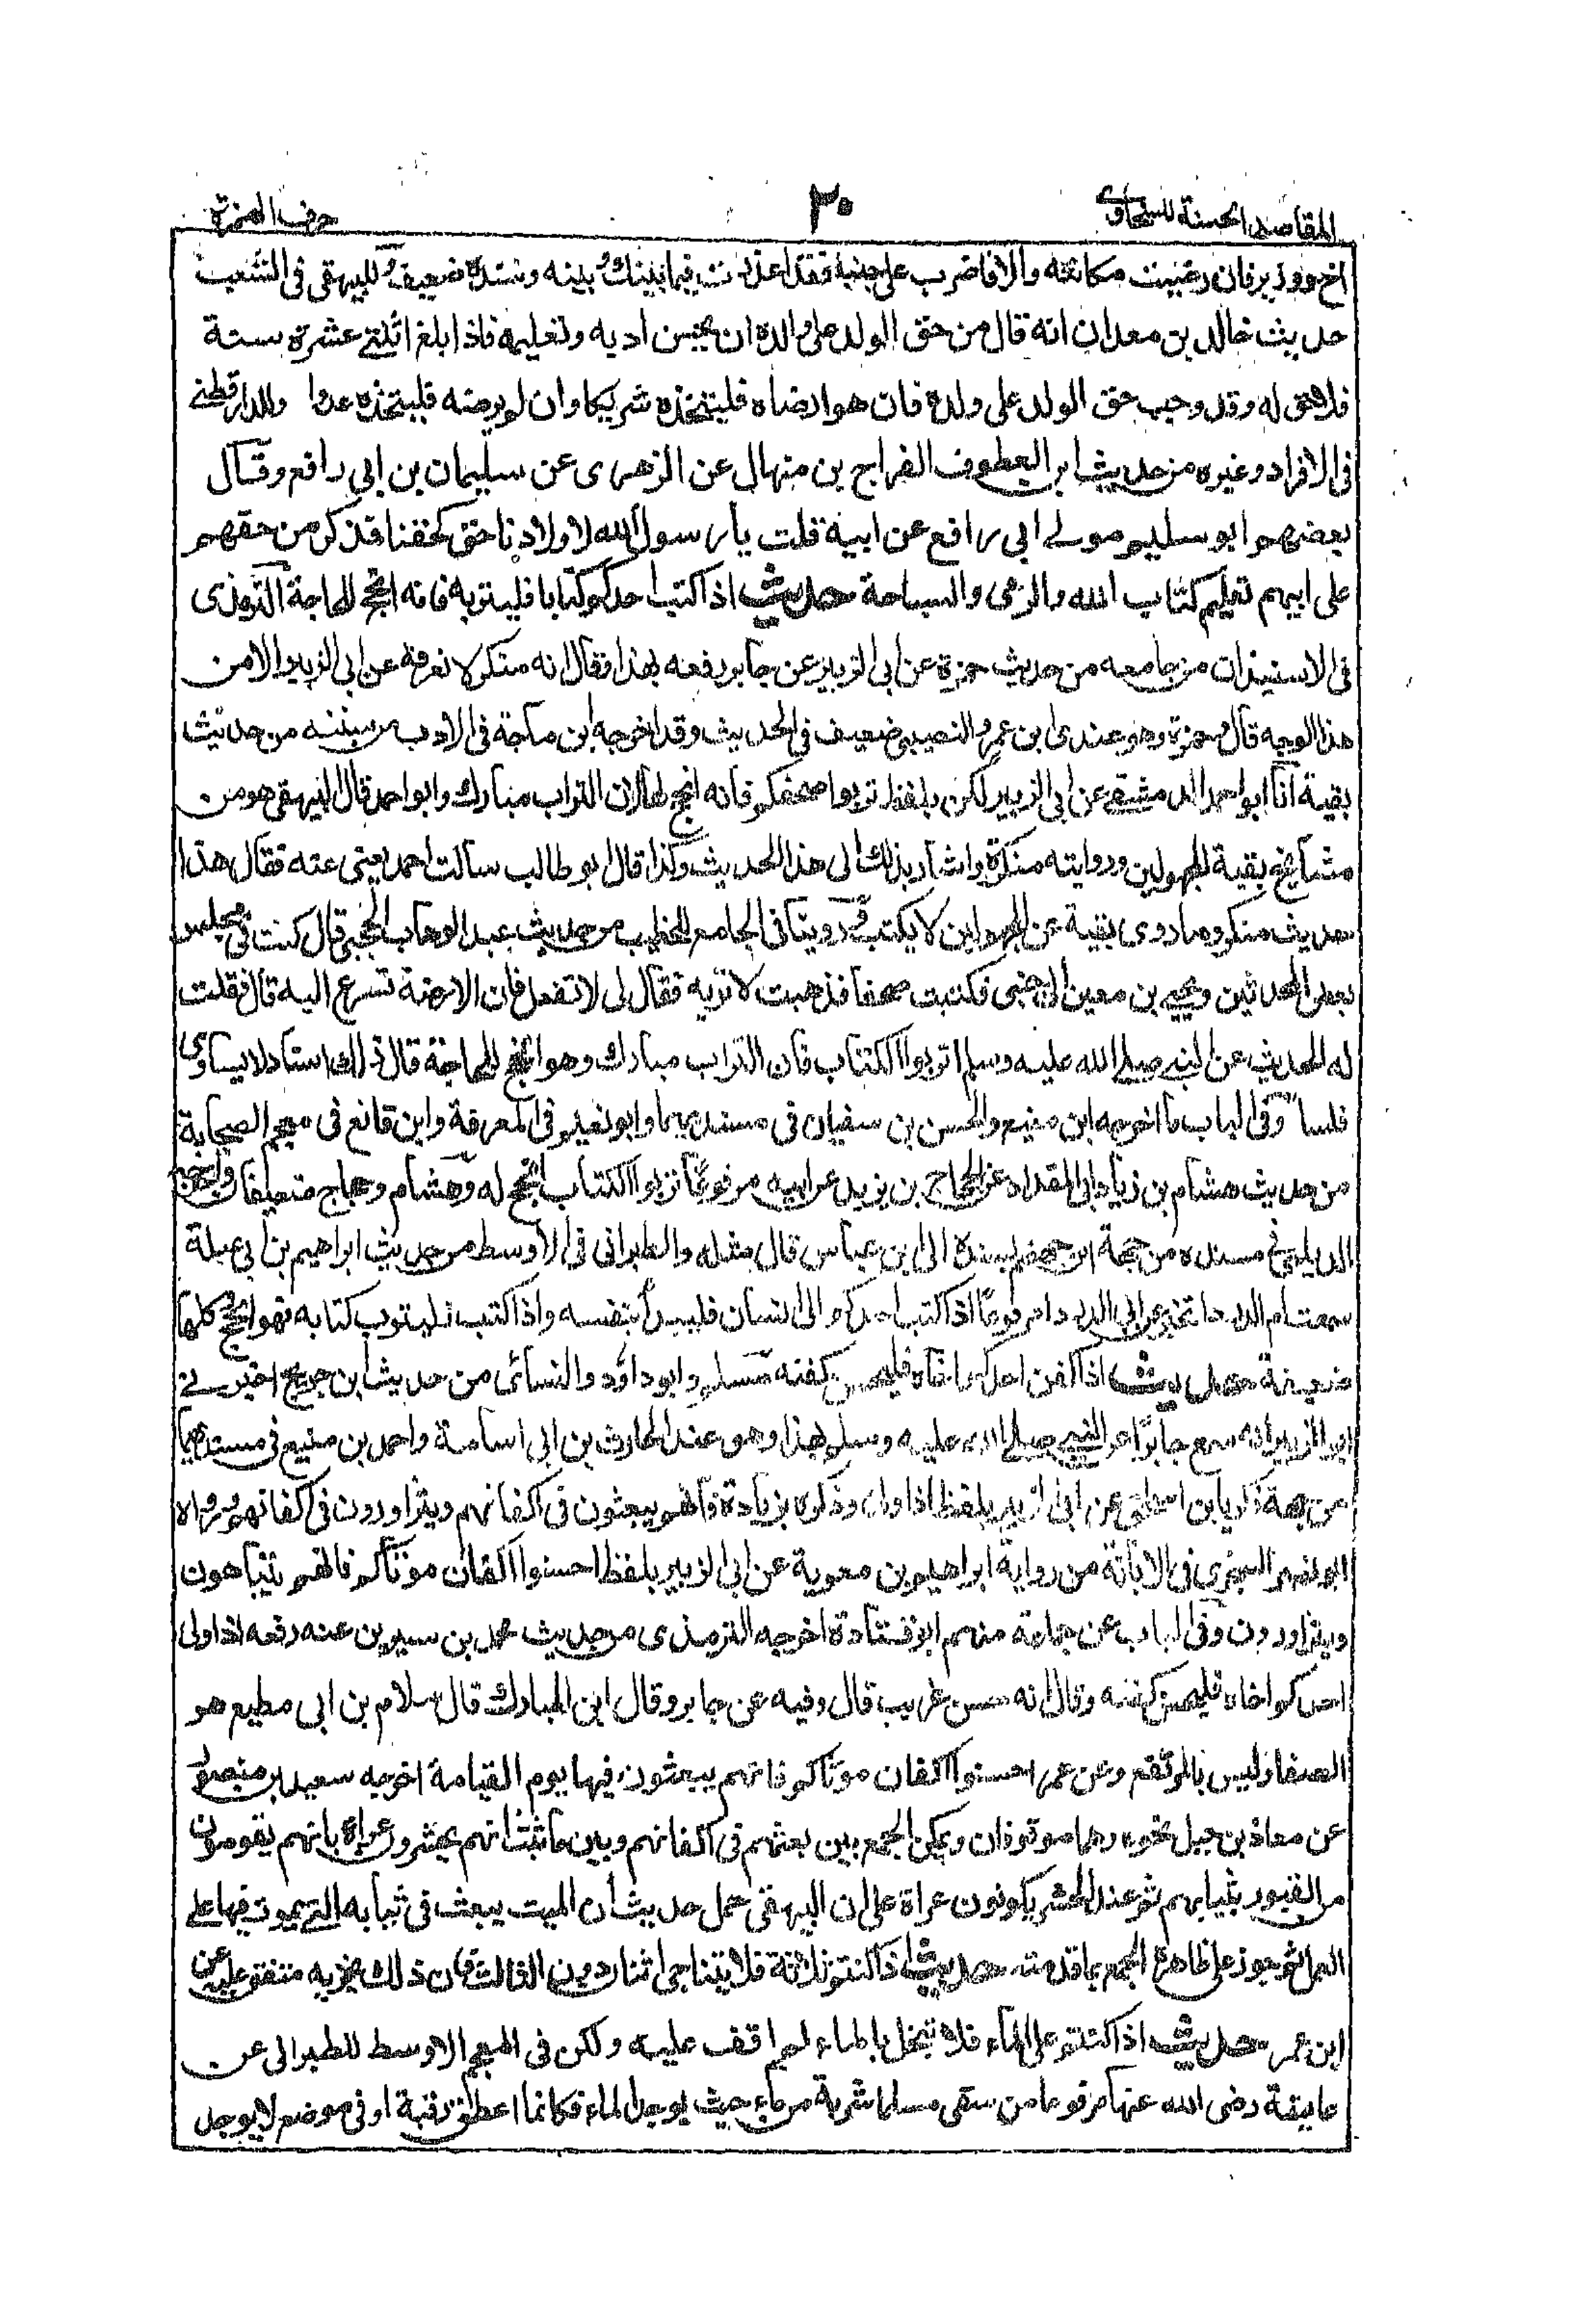 المقاصد الحسنة للسخاوى
٣٠
حرف الهمزة
اخ ووزير فان رضيت مكانته والا فاضرب على جنبه فقد اعذرت فيما بينك وبينه وسنده ضعيف وللبيهقى فى الشعب
حديث خالد بن معدان انه قال من حق الولد على والده ان يحسن ادبه وتعليمه فاذا بلغ اثنتى عشرة سنة
فلا حق له وقد وجب حق الوالد على ولده فان هو ارضاه فليتخذه شريكا وان لم يرضه فليتخذه عدوا وللدارقطنى
فى الافراد وغيره من حديث ابى العطوف الجراح بن منهال عن الزهرى عن سليمان بن ابى رافع وقال
بعضهم ابو سليم مولى ابى رافع عن ابيه قلت يا رسول الله لاولادنا حق كحقنا فذكر من حقهم
على ابيهم تعليم كتاب الله والرمى والسباحة حديث اذا كتب احدكم كتابا فليتربه فانه انجح للحاجة الترمذى
فى الاستيذان من جامعه من حديث حمزة عن ابى الزبير عن جابر رفعه بهذا فقال انه منكر لا نعرفه عن ابى الزبير الا من
هذا الوجه قال وحمزة وهو عندى ابن عمرو النصيبى ضعيف فى الحديث وقد اخرجه ابن ماجة فى الادب من سننه من حديث
بقية انا ابو احمد الدمشقى عن ابى الزبير لكن بلفظ تربوا صحفكم فانه انجح لها ان التراب مبارك وابو احمد قال البيهقى هو من
مشايخ بقية المجهولين وروايته منكرة واشار بذلك الى هذا الحديث وكذا قال ابو طالب سالت احمد يعنى عنه فقال هذا
حديث منكر وما روى بقية عن المجهولين لا يكتب وروينا فى الجامع للخطيب من حديث عبد الوهاب الحجبى قال كنت فى مجلس
بعض المحدثين ويحيى بن معين الى جنبى فكتبت صحفا فذهبت لاتربه فقال لى لا تفعل فان الارضة تسرع اليه قال فقلت
له الحديث عن النبى صلى الله عليه وسلم اتربوا الكتاب فان التراب مبارك وهو انجح للحاجة قال ذلك اسناد لا يساوى
فلسا وفى الباب ما اخرجه ابن منيع والحسن بن سفيان فى مسنديهما وابو نعيم فى المعرفة وابن قانع فى معجم الصحابة
من حديث هشام بن زياد ابى المقدام عن الحجاج بن يزيد عن ابيه مرفوعا تربوا الكتاب انجح له وهشام وحجاج ضعيفان
الديلمى فى مسنده من جهة بسنده الى ابن عباس قال مثله والطبرانى فى الاوسط من حديث ابراهيم بن ابى عبلة
سمعت ام الدرداء تخبر عن ابى الدرداء مرفوعا اذا كتب احدكم الى انسان فليبدأ بنفسه واذا كتب فليترب كتابه فهو انجح وكلها
ضعيفة حديث اذا كفن احدكم اخاه فليحسن كفنه مسلم وابو داؤد والنسائى من حديث ابن جريج اخبرنى
ابو الزبير انه سمع جابرا عن النبى صلى الله عليه وسلم بهذا وهو عند الحارث بن ابى اسامة واحمد بن منيع فى مسنديهما
من جهة زكريا بن اسحاق عن ابى الزبير بلفظ اذا ولى وذكره بزيادة فانهم يبعثون فى اكفانهم ويتزاورون فى اكفانهم ورواه
ابو نصر السجزى فى الابانة من رواية ابراهيم بن معوية عن ابى الزبير بلفظ احسنوا اكفان موتاكم فانهم يتباهون
ويتزاورون وفى الباب عن جماعة منهم ابو قتادة اخرجه الترمذى من حديث محمد بن سيرين عنه رفعه اذا ولى
احدكم اخاه فليحسن كفنه وقال انه حسن غريب قال وفيه عن جابر وقال ابن المبارك قال سلام بن ابى مطيع هو
الصفا وليس بالمرتفع وعن عمر احسنوا اكفان موتاكم فانهم يبعثون فيها يوم القيامة اخرجه سعيد بن منصور
عن معاذ بن جبل نحوه وهما موقوفان ويمكن الجمع بين بعثهم فى اكفانهم وبين ما ثبت انهم يحشرون عراة بانهم يقومون
من القبور بثيابهم ثم عند الحشر يكونون عراة على ان البيهقى حمل حديث ان الميت يبعث فى ثيابه التى يموت فيها على
العمل حديث اذا كنتم ثلاثة فلا يتناجى اثنان دون الثالث فان ذلك يحزنه متفق عليه عن
ابن عمر حديث اذا كنتم على الماء فلا تبخل بالماء لم اقف عليه ولكن فى المعجم الاوسط للطبرانى عن
عايشة رضى الله عنها مرفوعا من سقى مسلما شربة من ماء حيث يوجد الماء فكانما اعتق رقبة او فى موضع لا يوجد